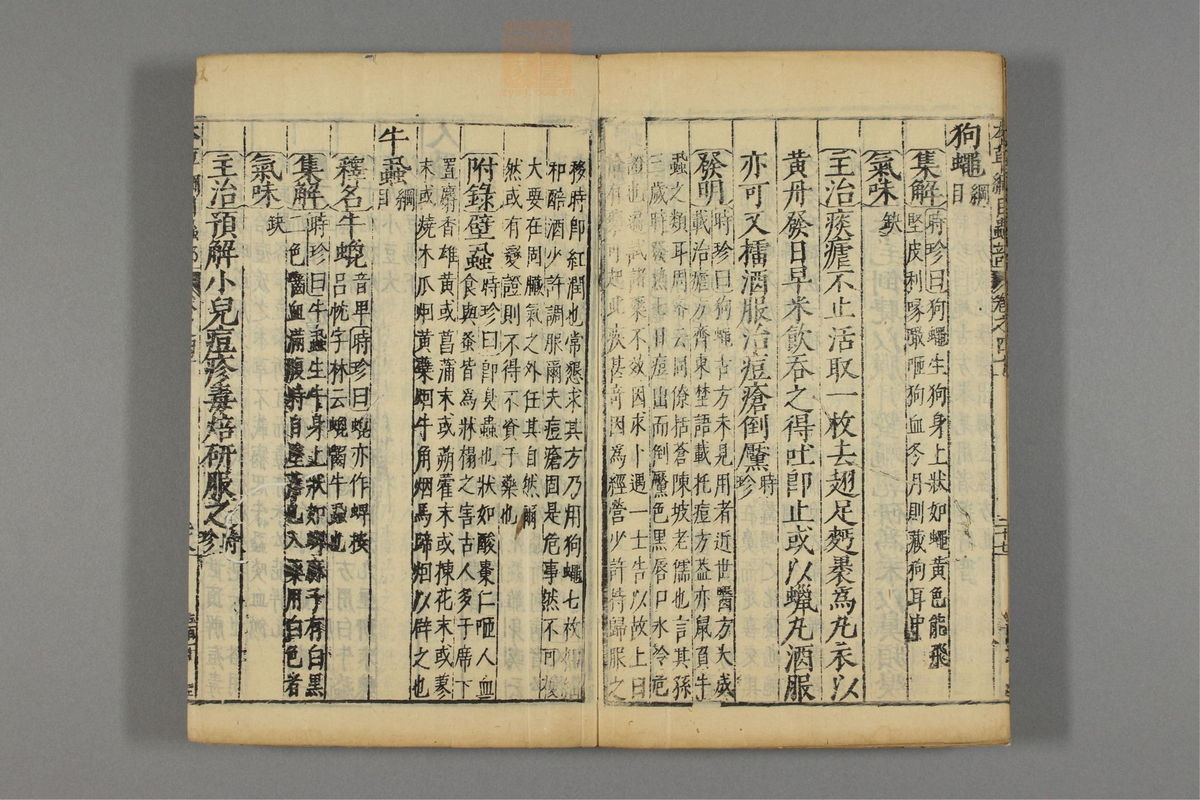 狗蠅綱目
集解時珍曰狗蠅生狗身上狀如蠅黃色能飛
堅皮利喙噉咂狗血冬月則藏狗耳中
氣味缺
主治痰瘧不止活取一枚去翅足麪裹爲丸衣以
黃丹發日早米飲吞之得吐即止或以蠟丸酒服
亦可又擂酒服治痘瘡倒黶時珍
發明時珍曰狗蠅古方未見用者近世醫方大成
載治瘧方齊東埜語載托痘方葢亦鼠負牛
蝨之類耳周密云同僚括蒼陳坡老儒也言其孫
三歲時發熱七日痘出而倒黶色黑唇口冰冷危
證也遍試諸藥不效因求卜遇一士告以故士曰
可起此疾甚奇因爲經營少許持歸服之
移時即紅潤也常懇求其方乃用狗蠅七枚
和醅酒少許調服爾夫痘瘡固是危事然不可擾
大要在固臟氣之外任其自然爾
然或有變證則不得不資于藥也
附錄壁蝨時珍曰即臭蟲也狀如酸棗仁咂人血
食與蚤皆爲牀榻之害古人多于席下
置麝香雄黃或菖蒲末或蒴藋末或楝花末或蓼
末或燒木瓜烟黃蘗烟牛角烟馬蹄烟以辟之也
牛蝨綱目
釋名牛螕音卑時珍曰螕亦作蜱按
呂忱字林云螕囓牛蝨也
集解時珍曰牛蝨生牛身上狀如蓖麻子有白黑
二色囓血滿腹時自墜落也入藥用白色者
氣味缺
主治預解小兒痘疹毒焙研服之時珍